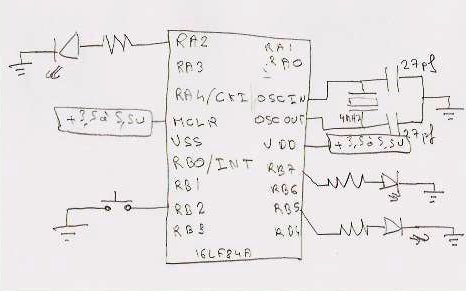 RA2
RA3
RA4/CKI
MCLR
VSS
RB0/INT
RB1
RB2
RB3
RA1
RA0
OSCIN
OSCOUT
VDD
RB7
RB6
RB5
RB4
16LF84A
+3,5 à 5,5V
27pf
4MHZ
27pf
+3,5 à 5,5V